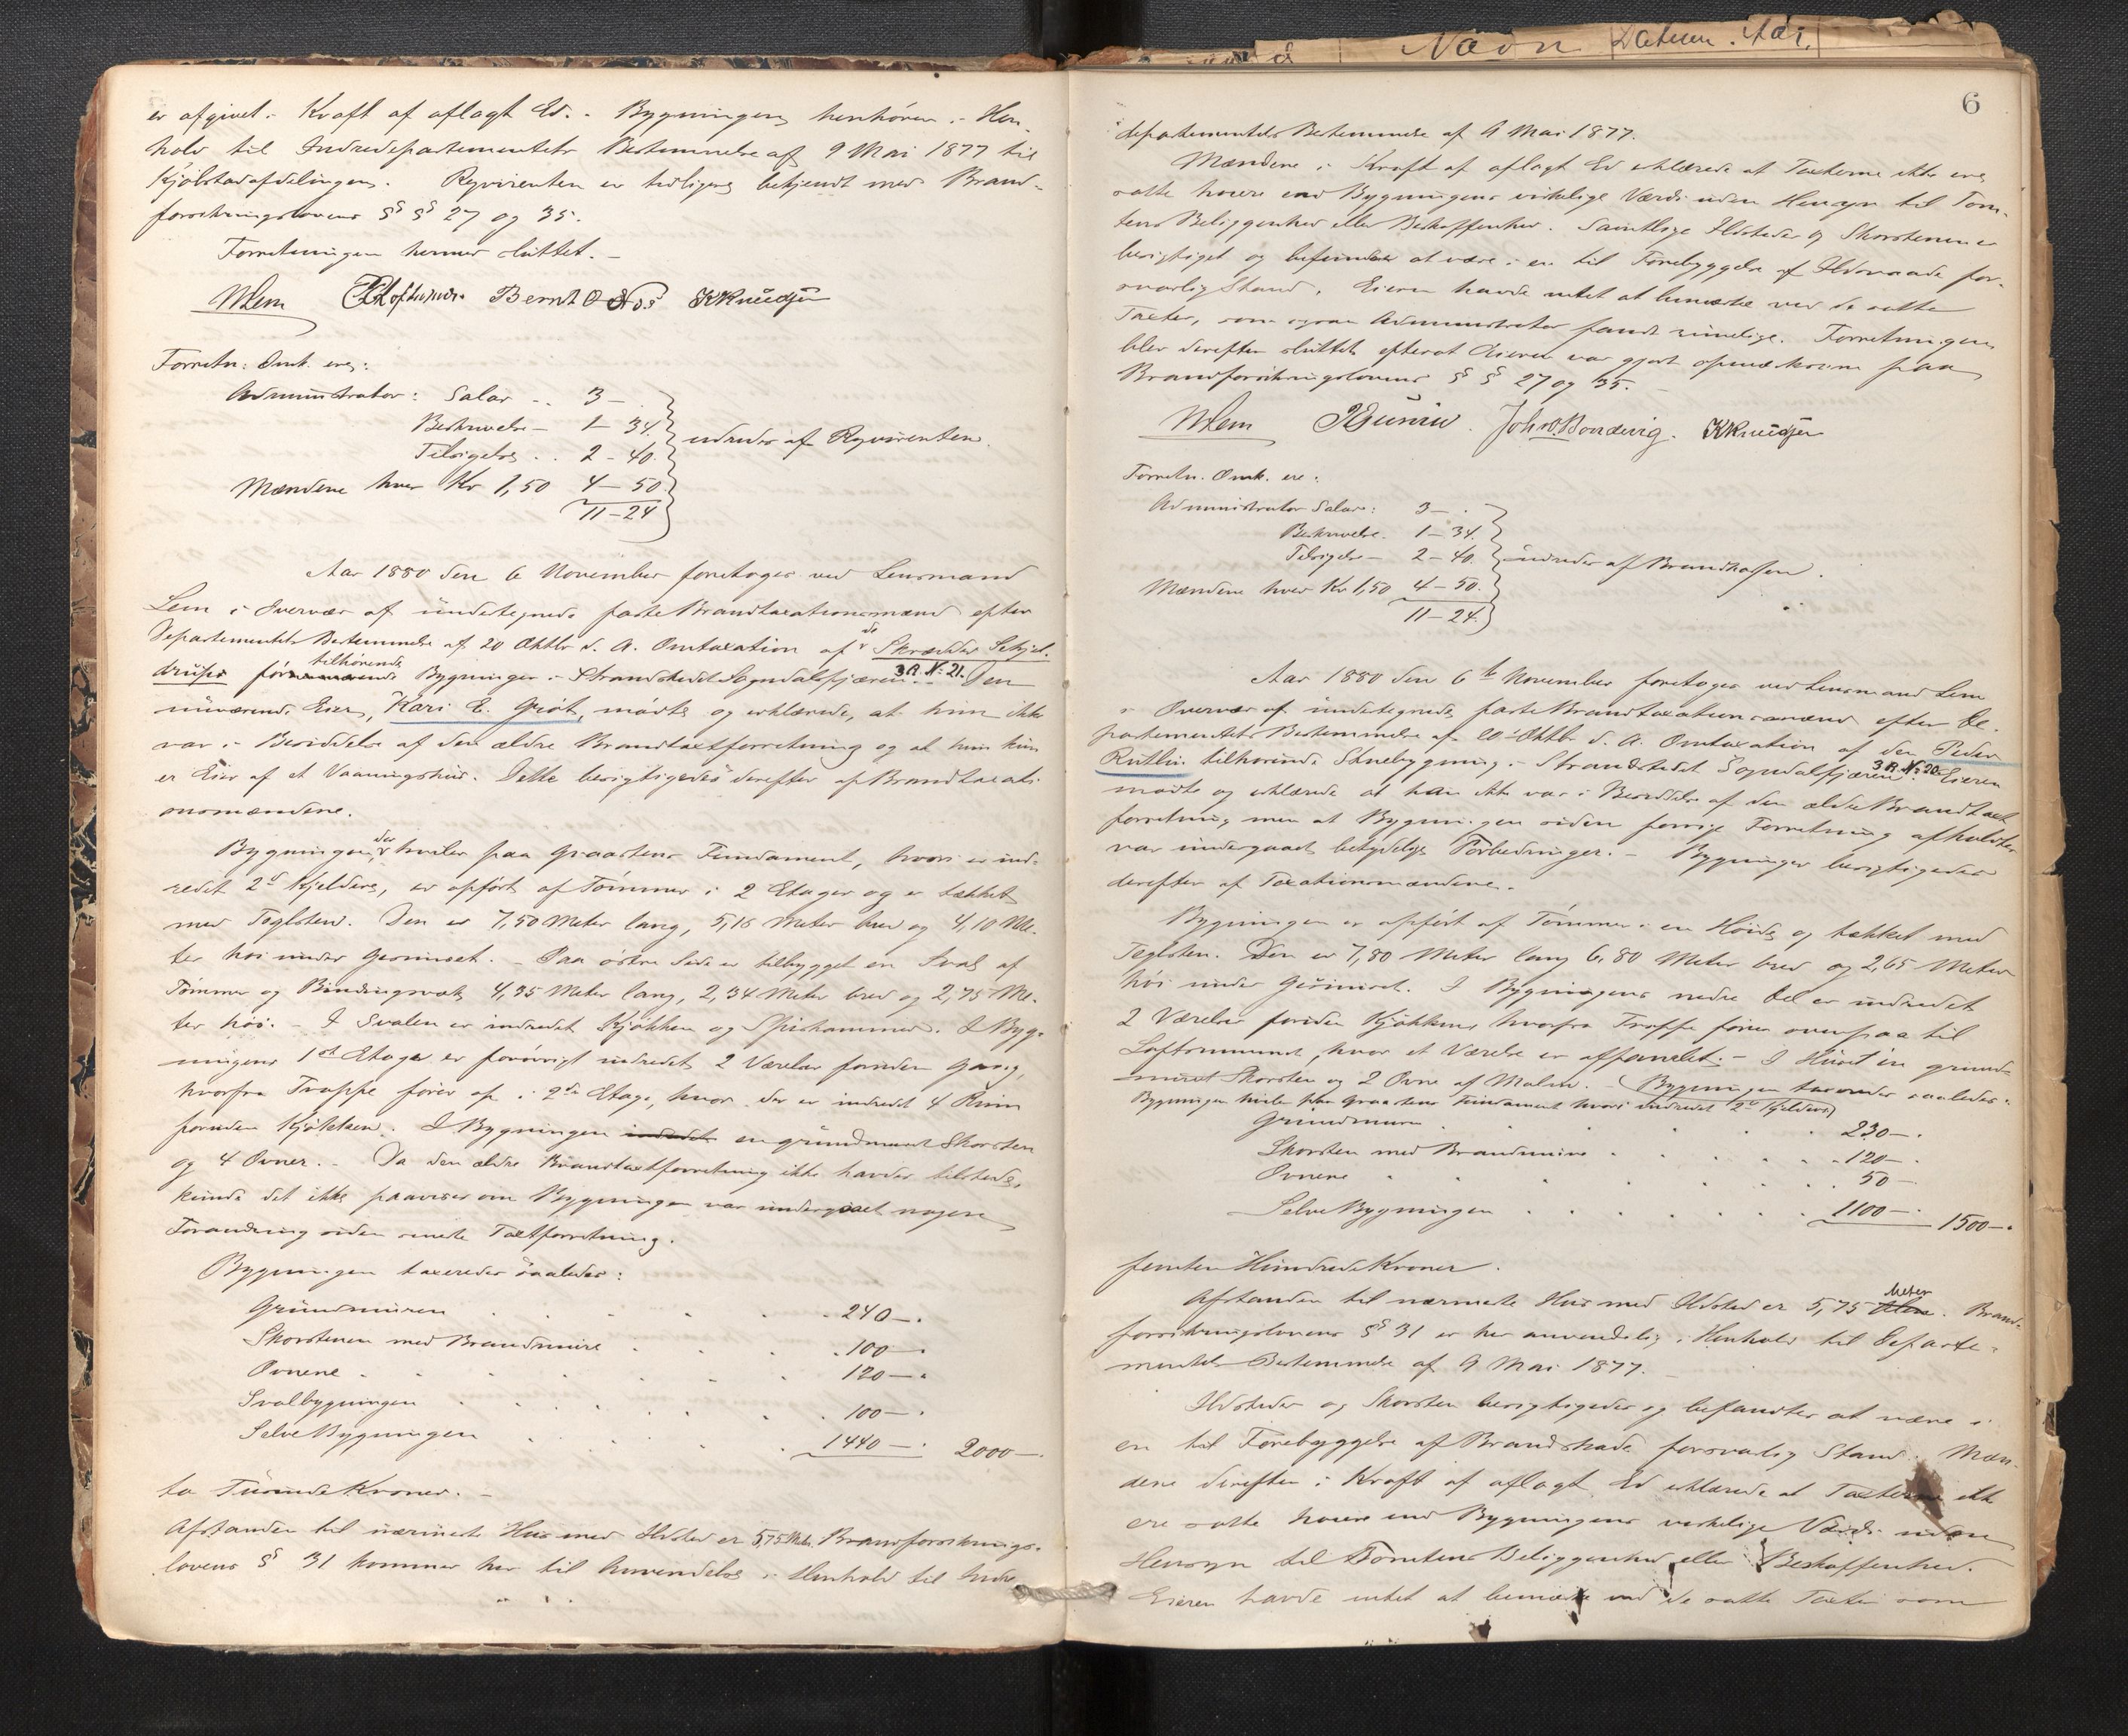 er afgivet i Kraft af aflagt Ed. - Bygningen henhører i Hen-
hold til Indredepartementets Bestemmelse af 9 Mai 1877 til
Kjøbstadafdelingen. Reqvirenten er tidligere bekjendt med Brand-
forsikringslovens §§ 27 og 35.
Forretningen hermed sluttet. -
MLem Bernt O Nes KKnudsen
Forretn: Omk. ere:
Administrator: Salær .. 3 -
Beskrivelse - 1 - 34.
Tilsigelse .. 2 - 40.
Mændene hver Kr 1,50 4 - 50
11 - 24
udredes af Reqvirenten.
Aar 1880 den 6 November foretoges ved Lensmand
Lem i Overvær af undertegnede faste Brandtaxationsmænd efter
Departementets Bestemmelse af 20 Oktbr d. A. Omtaxation af de Skrædder Schjel-
drups tilhørende Bygninger i Strandstedet Sogndalsfjæren. 3 R. N: 21. Den
nuværende Eier, Kari E. Grøt, mødte og erklærede, at hun ikke
var i Besiddelse af den ældre Brandtaxtforretning og at hun kun
er Eier af et Vaaningshus. Dette besigtigedes derefter af Brandtaxati-
onsmændene.
Bygningen, der hviler paa Graastens Fundament, hvori er ind-
redet 2de Kjeldere, er opført af Tømmer i 2 Etager og er tækket
med Teglsten. Den er 7,50 Meter lang, 5,15 Meter bred og 4,10 Me-
ter høi under Gesimset. - Paa østre Side er tilbygget en Sval af
Tømmer og Bindingsværk 4,35 Meter lang, 2,34 Meter bred og 2,75 Me-
ter høi. - I Svalen er indredet Kjøkken og Spiskammer. I Byg-
ningens 1ste Etage er forøvrigt indredet 2 Værelser foruden Gang,
hvorfra Trappe fører op i 2den Etage, hvor der er indredet 4 Rum
foruden Kjøkken. I Bygningen indredet en grundmuret Skorsten
og 4 Ovner. - Da den ældre Brandtaxtforretning ikke havdes tilstede,
kunde det ikke paavises om Bygningen var undergaaet nogen
Forandring siden sidste Taxtforretning.
Bygningen taxeredes saaledes:
Grundmuren 240 -
Skorstenen med Brandmure 100 -
Ovnene 120 -
Svalbygningen 100 -
Selve Bygningen 1440 - 2000 -
to Tusinde Kroner. -
Afstanden til nærmeste Hus med Ildsted er 5,75 Met. Brandforsikrings-
lovens § 31 kommer her til Anvendelse i Henhold til Indre-
Navn Datum. Aar.
6
departementets Bestemmelse af 9 Mai 1877.
Mændene i Kraft af aflagt Ed erklærede at Taxterne ikke ere
satte høiere end Bygningens virkelige Værdi uden Hensyn til Tom-
tens Beliggenhed eller Beskaffenhed. Samtlige Ildsteder og Skorstenen er
besigtiget og befundet at være i en til Forebyggelse af Ildsvaade for-
svarlig Stand. Eieren havde intet at bemærke ved de satte
Taxter, som ogsaa Administrator fandt rimelige. Forretningen
blev derefter sluttet efterat Eieren var gjort opmærksom paa
Brandforsikringslovens §§ 27 og 35. -
MLem Joh. O. Bondevig. KKnudsen
Forretn. Omk. ere:
Administrator Salær: 3 - .
Beskrivelse. 1 - 34.
Tilsigelse - 2 - 40.
Mændene hver Kr 1,50 4 - 50.
11 - 24.
udredes af Brandkassen.
Aar 1880 den 6te November foretoges ved Lensmand Lem
i Overvær af undertegnede faste Brandtaxationsmænd efter De-
partementets Bestemmelse af 20 Oktbr d. A. Omtaxation af den Peder
Rutlin tilhørende Stuebygning i Strandstedet Sogndalsfjæren. 3 R. N: 20. Eieren
mødte og erklærede at han ikke var i Besiddelse af den ældre Brandtaxt
forretning men at Bygningen siden forrige Forretning afholdtes
var undergaaet betydelige Forbedringer. - Bygningen besigtigedes
derefter af Taxationsmændene.
Bygningen er opført af Tømmer i en Høide og tækket med
Teglsten. Den er 7,80 Meter lang 6,80 Meter bred og 2,65 Meter
høi under Gesimset. I Bygningens nedre Del er indredet
2 Værelser foruden Kjøkken hvorfra Trappe fører ovenpaa til
Loftsrummet, hvor et Værelse er afpanelet. - I Huset en grund-
muret Skorsten og 2 Ovne af Malm. - Bygningen taxeredes saaledes:
Bygningen hviler paa Graastens Fundament hvori indredet 2de Kjeldere)
Grundmuren 230 -
Skorsten med Brandmure 120 -
Ovnene 50 -
Selve Bygningen 1100 - 1500 -
femten Hundrede Kroner.
Afstanden til nærmeste Hus med Ildsted er 5,75 Meter. Brand-
forsikringslovens § 31 er her anvendelig i Henhold til Departe-
mentets Bestemmelse af 9 Mai 1877. -
Ildsteder og Skorsten besigtigedes og befandtes at være i
en til Forebyggelse af Brandskade forsvarlig Stand. Mæn-
dene derefter i Kraft af aflagt Ed erklærede at Taxterne ikke
ere satte høiere end Bygningens virkelige Værdi uden
Hensyn til Tomtens Beliggenhed eller Beskaffenhed.
Eieren havde intet at bemærke ved de satte Taxter som